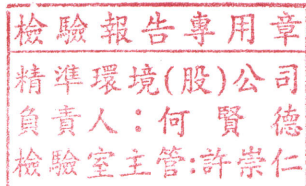 檢驗報告專用章
精準環境(股)公司
負責人:何賢德
檢驗室主管:許崇仁